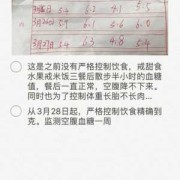 3月27日 5.4 6.5
这是之前没有严格控制饮食，戒甜食
水果戒米饭三餐后散步半小时的血糖
值，餐后一直正常，空腹降不下来。
同时也为了控制体重长胎不长肉...
从3月28日起，严格控制饮食精确到
克。监测空腹血糖一周